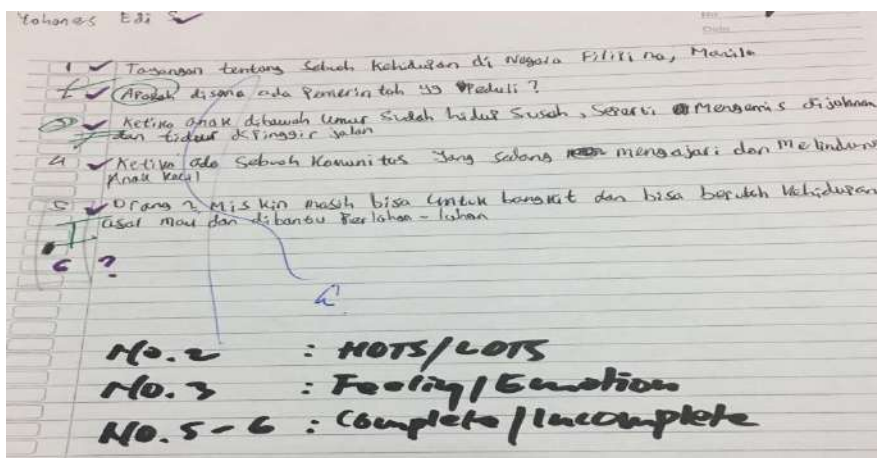 Yohanes Edi S
No
Date
1 Tayangan tentang Sebuah Kehidupan di Negara Filipina, Manila
2 Apakah disana ada Pemerintah yg Peduli ?
3 Ketika anak dibawah Umur Sudah hidup Susah, Seperti Mengemis dijalanan
dan tidur dipinggir jalan
4 Ketika ada Sebuah Komunitas yang sedang mengajari dan Melindungi
Anak Kecil
5 Orang2 Miskin masih bisa untuk bangkit dan bisa berubah Kehidupan
asal mau dan dibantu Perlahan-lahan
6 ?
No.2 : HOTS/LOTS
No.3 : Feeling/Emotion
No.5-6 : Complete/Incomplete